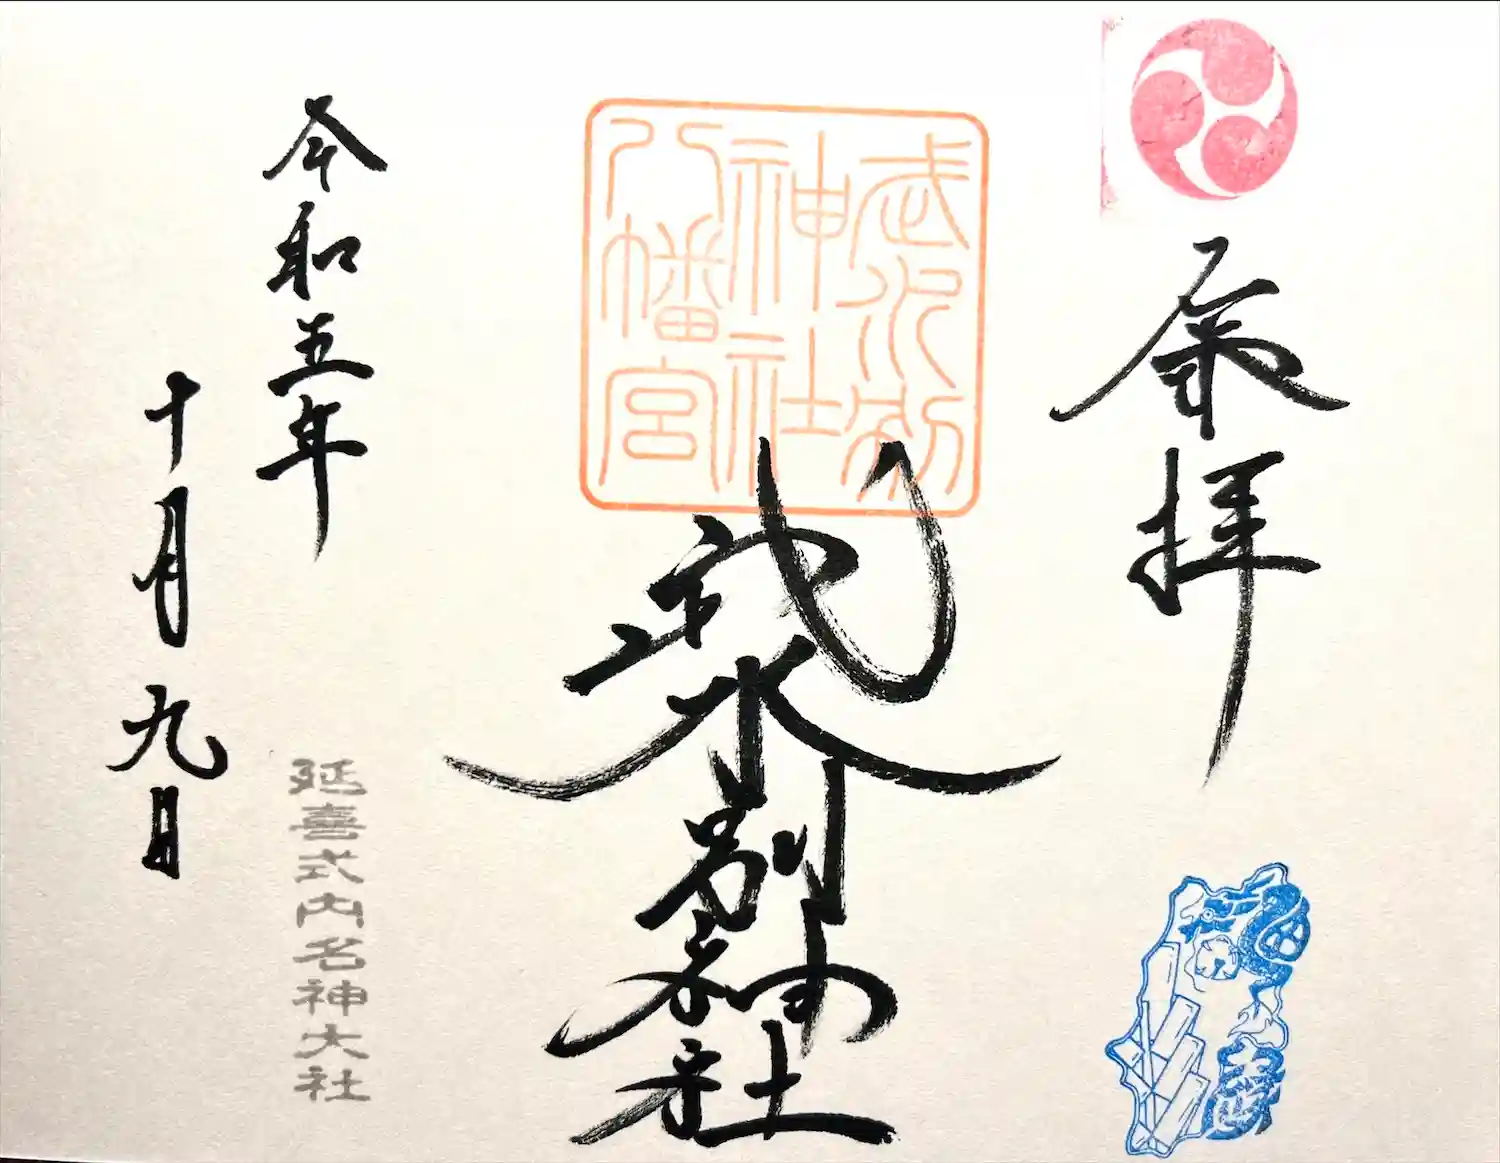 奉拝
武水別
神社
八幡宮
武水別神社
延喜式内名神大社
令和五年
十月九日